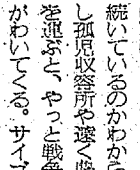 続いているのかわから
し孤児収容所や遠く
を運ぶと、やっと戦
がわいてくる。サイ